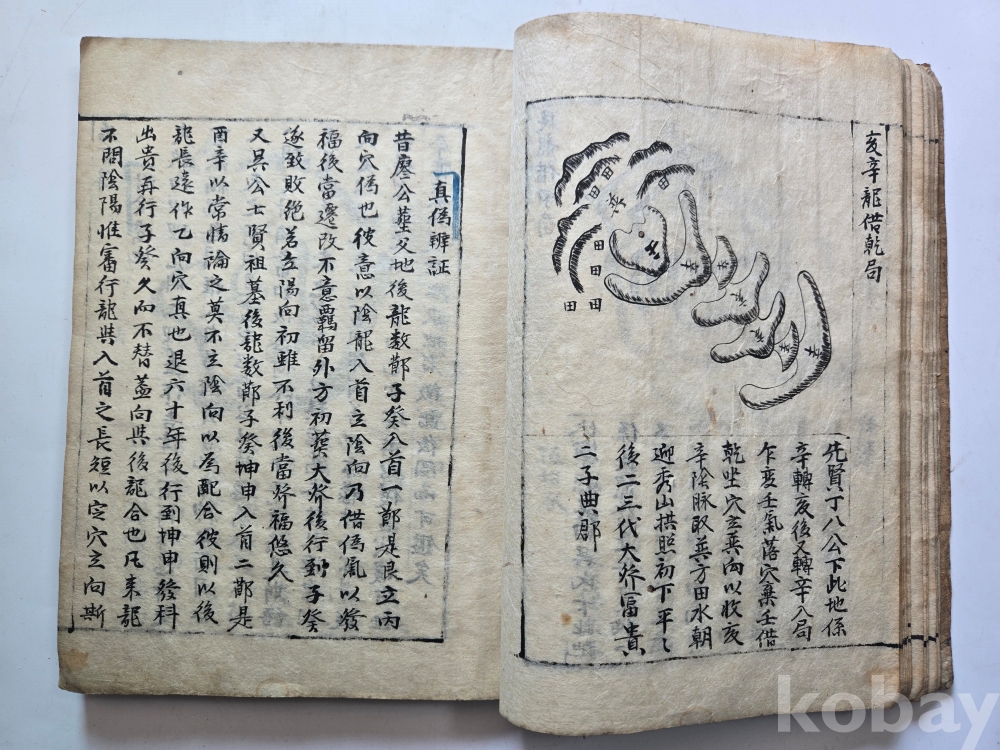 亥辛龍借乾局
辛
辛
辛
田
田
田
田
田
田
田
先賢丁八公下此地係
辛轉亥後又轉辛入局
乍变壬氣落穴棄壬借
乾坐穴立巽向以收亥
辛陰脉取巽方田水朝
迎秀山拱照初下平〻
後二三代大發富貴
二子典郡
真偽辨証
昔廖公塟父地後龍数節子癸入首一節是艮立丙
向穴偽也彼意以陰龍入首立陰向乃借偽氣以發
福後當遷改不意羈留外方初葬大發後行到子癸
遂致敗絶若立陽向初雖不利後當發福悠久
又具公士賢祖墓後龍数節子癸坤申入首二節是
酉辛以常情論之莫不立陰向以為配合彼則以後
龍長遠作乙向穴真也退六十年後行到坤申發科
出貴再行子癸久而不替蓋向與後龍合也凡来龍
不問陰陽惟審行龍與入首之長短以定穴立向斯
kobay